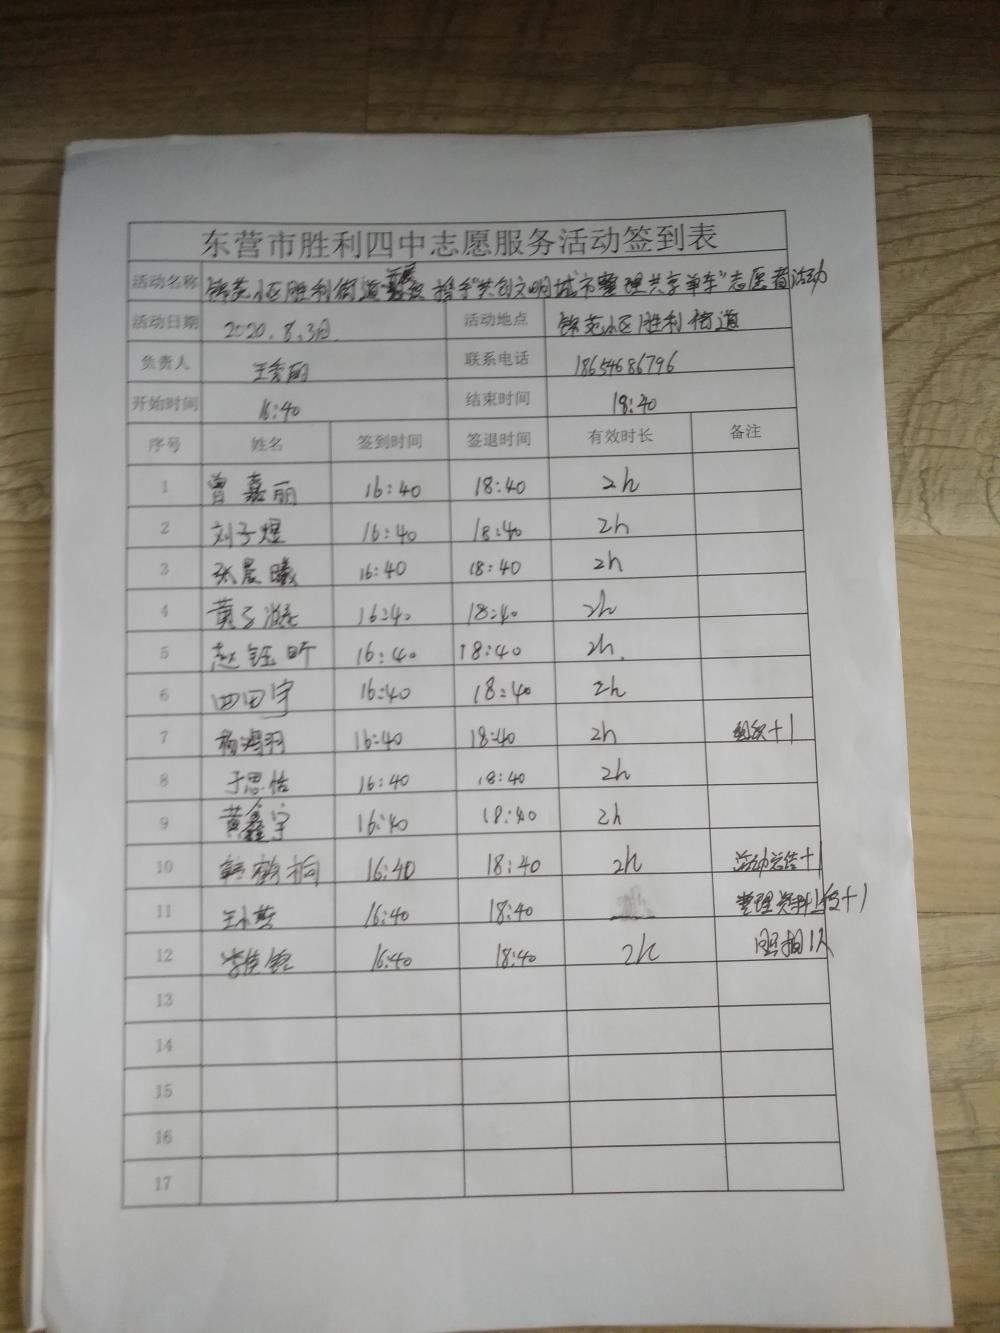 东营市胜利四中志愿服务活动签到表
活动名称 锦苑小区胜利街道 携手“共创文明城市整理共享单车”志愿者活动
活动日期 2020.8.3日 活动地点 锦苑小区胜利街道
负责人 王秀丽 联系电话 18654686796
开始时间 16:40 结束时间 18:40
序号 姓名 签到时间 签退时间 有效时长 备注
1 曾嘉丽 16:40 18:40 2h
2 刘子煜 16:40 18:40 2h
3 张晨曦 16:40 18:40 2h
4 黄子凝 16:40 18:40 2h
5 赵钰昕 16:40 18:40 2h.
6 16:40 18:40 2h
7 杨鸿羽 16:40 18:40 2h 组织+1
8 于思怡 16:40 18:40 2h
9 黄鑫宇 16:40 18:40 2h
10 韩鹤桐 16:40 18:40 2h 活动总结+1
11 16:40 18:40 整理资料上交+1
12 16:40 18:40 2h 照相1人
13
14
15
16
17